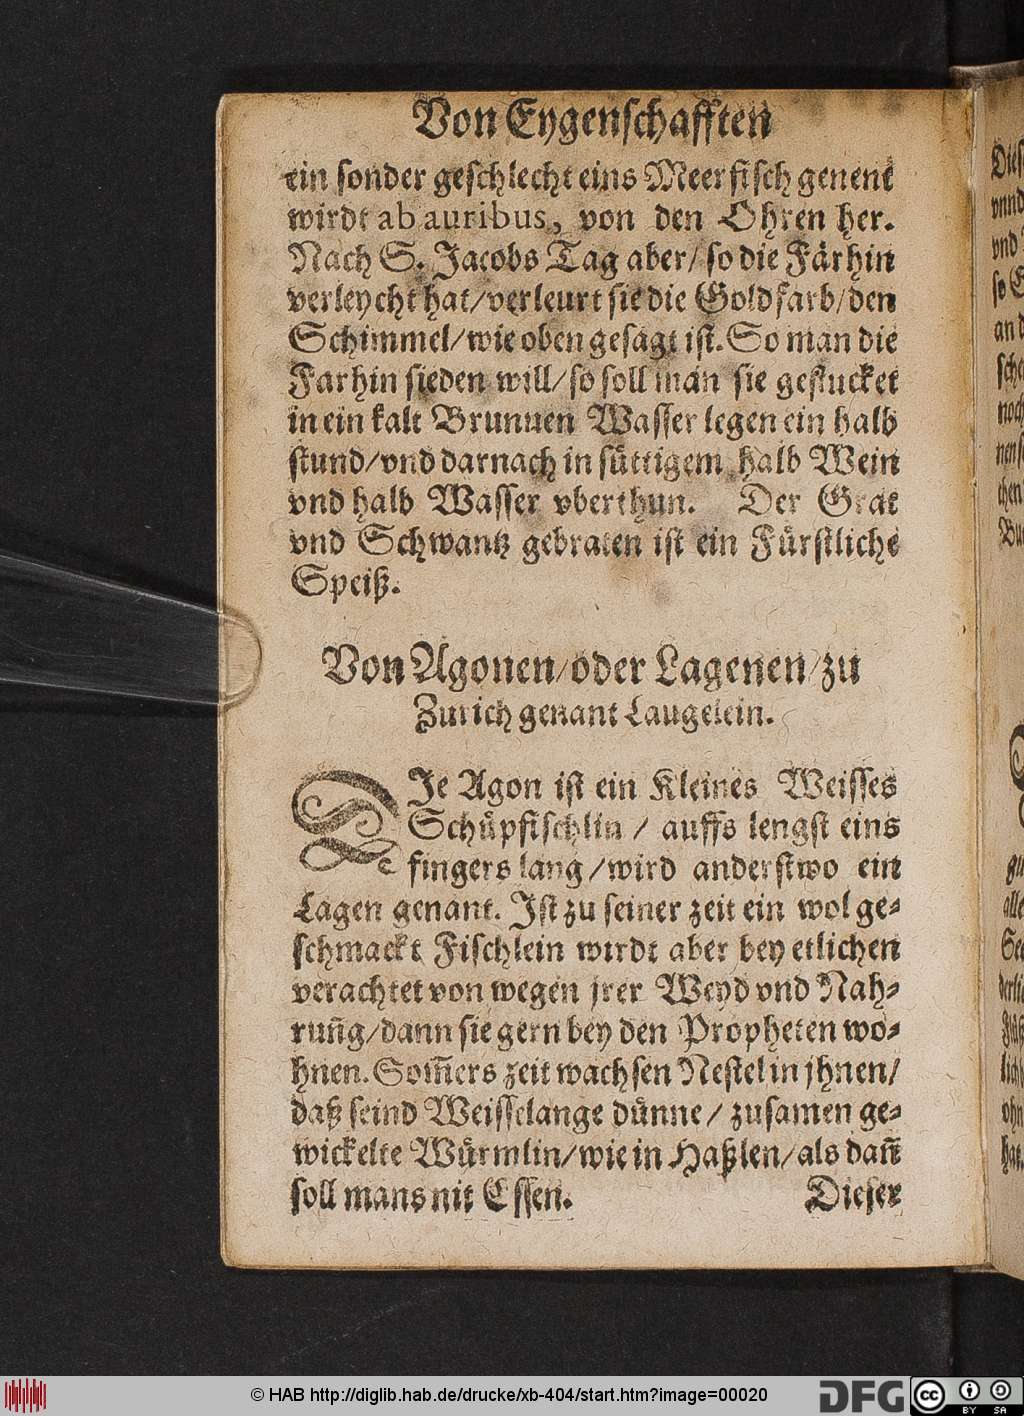 Von Eygenschafften
ein sonder geschlecht eins Meerfisch genent
wirdt ab auribus, von den Ohren her.
Nach S. Jacobs Tag aber/ so die Färhin
verleycht hat/verleurt sie die Goldfarb/den
Schimmel/wie oben gesagt ist. So man die
Farhin sieden will/so soll man sie gestucket
in ein kalt Brunnen Wasser legen ein halb
stund/vnd darnach in süttigem halb Wein
vnd halb Wasser vberthun. Der Grat
vnd Schwantz gebraten ist ein Fürstliche
Speiß.
Von Agonen/oder Lagenen/zu
Zurich genant Laugelein.
DJe Agon ist ein Kleines Weisses
Schüpfischlin / auffs lengst eins
fingers lang /wird anderstwo ein
Lagen genant. Jst zu seiner zeit ein wol ge-
schmackt Fischlein wirdt aber bey etlichen
verachtet von wegen jrer Weyd vnd Nah-
rung̃/dann sie gern bey den Propheten wo-
hnen. Som̃ers zeit wachsen Nestel in jhnen/
daß seind Weisselange dünne/ zusamen ge-
wickelte Würmlin/wie in Haßlen/als dañ
soll mans nit Essen. Dieser
Dies
vnnd
vnd
so E
an d
sche
noch
nens
chen
Bu
gu
alle
See
derli
Füß
lich
ohn
hat.
© HAB http://diglib.hab.de/drucke/xb-404/start.htm?image=00020
DFG
CC BY SA